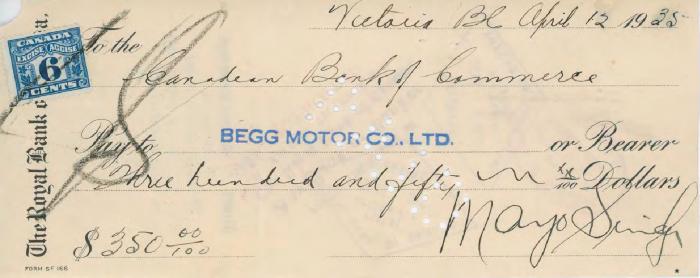 Victoria BC April 12 1935
CANADA
EXCISE ACCISE
6
CENTS
To the
Canadian Bank of Commerce
Pay to BEGG MOTOR CO., LTD. or Bearer
Three hundred and fifty xx/100 Dollars
$350 00/100
Mayo Singh
The Royal Bank
FORM SF 166